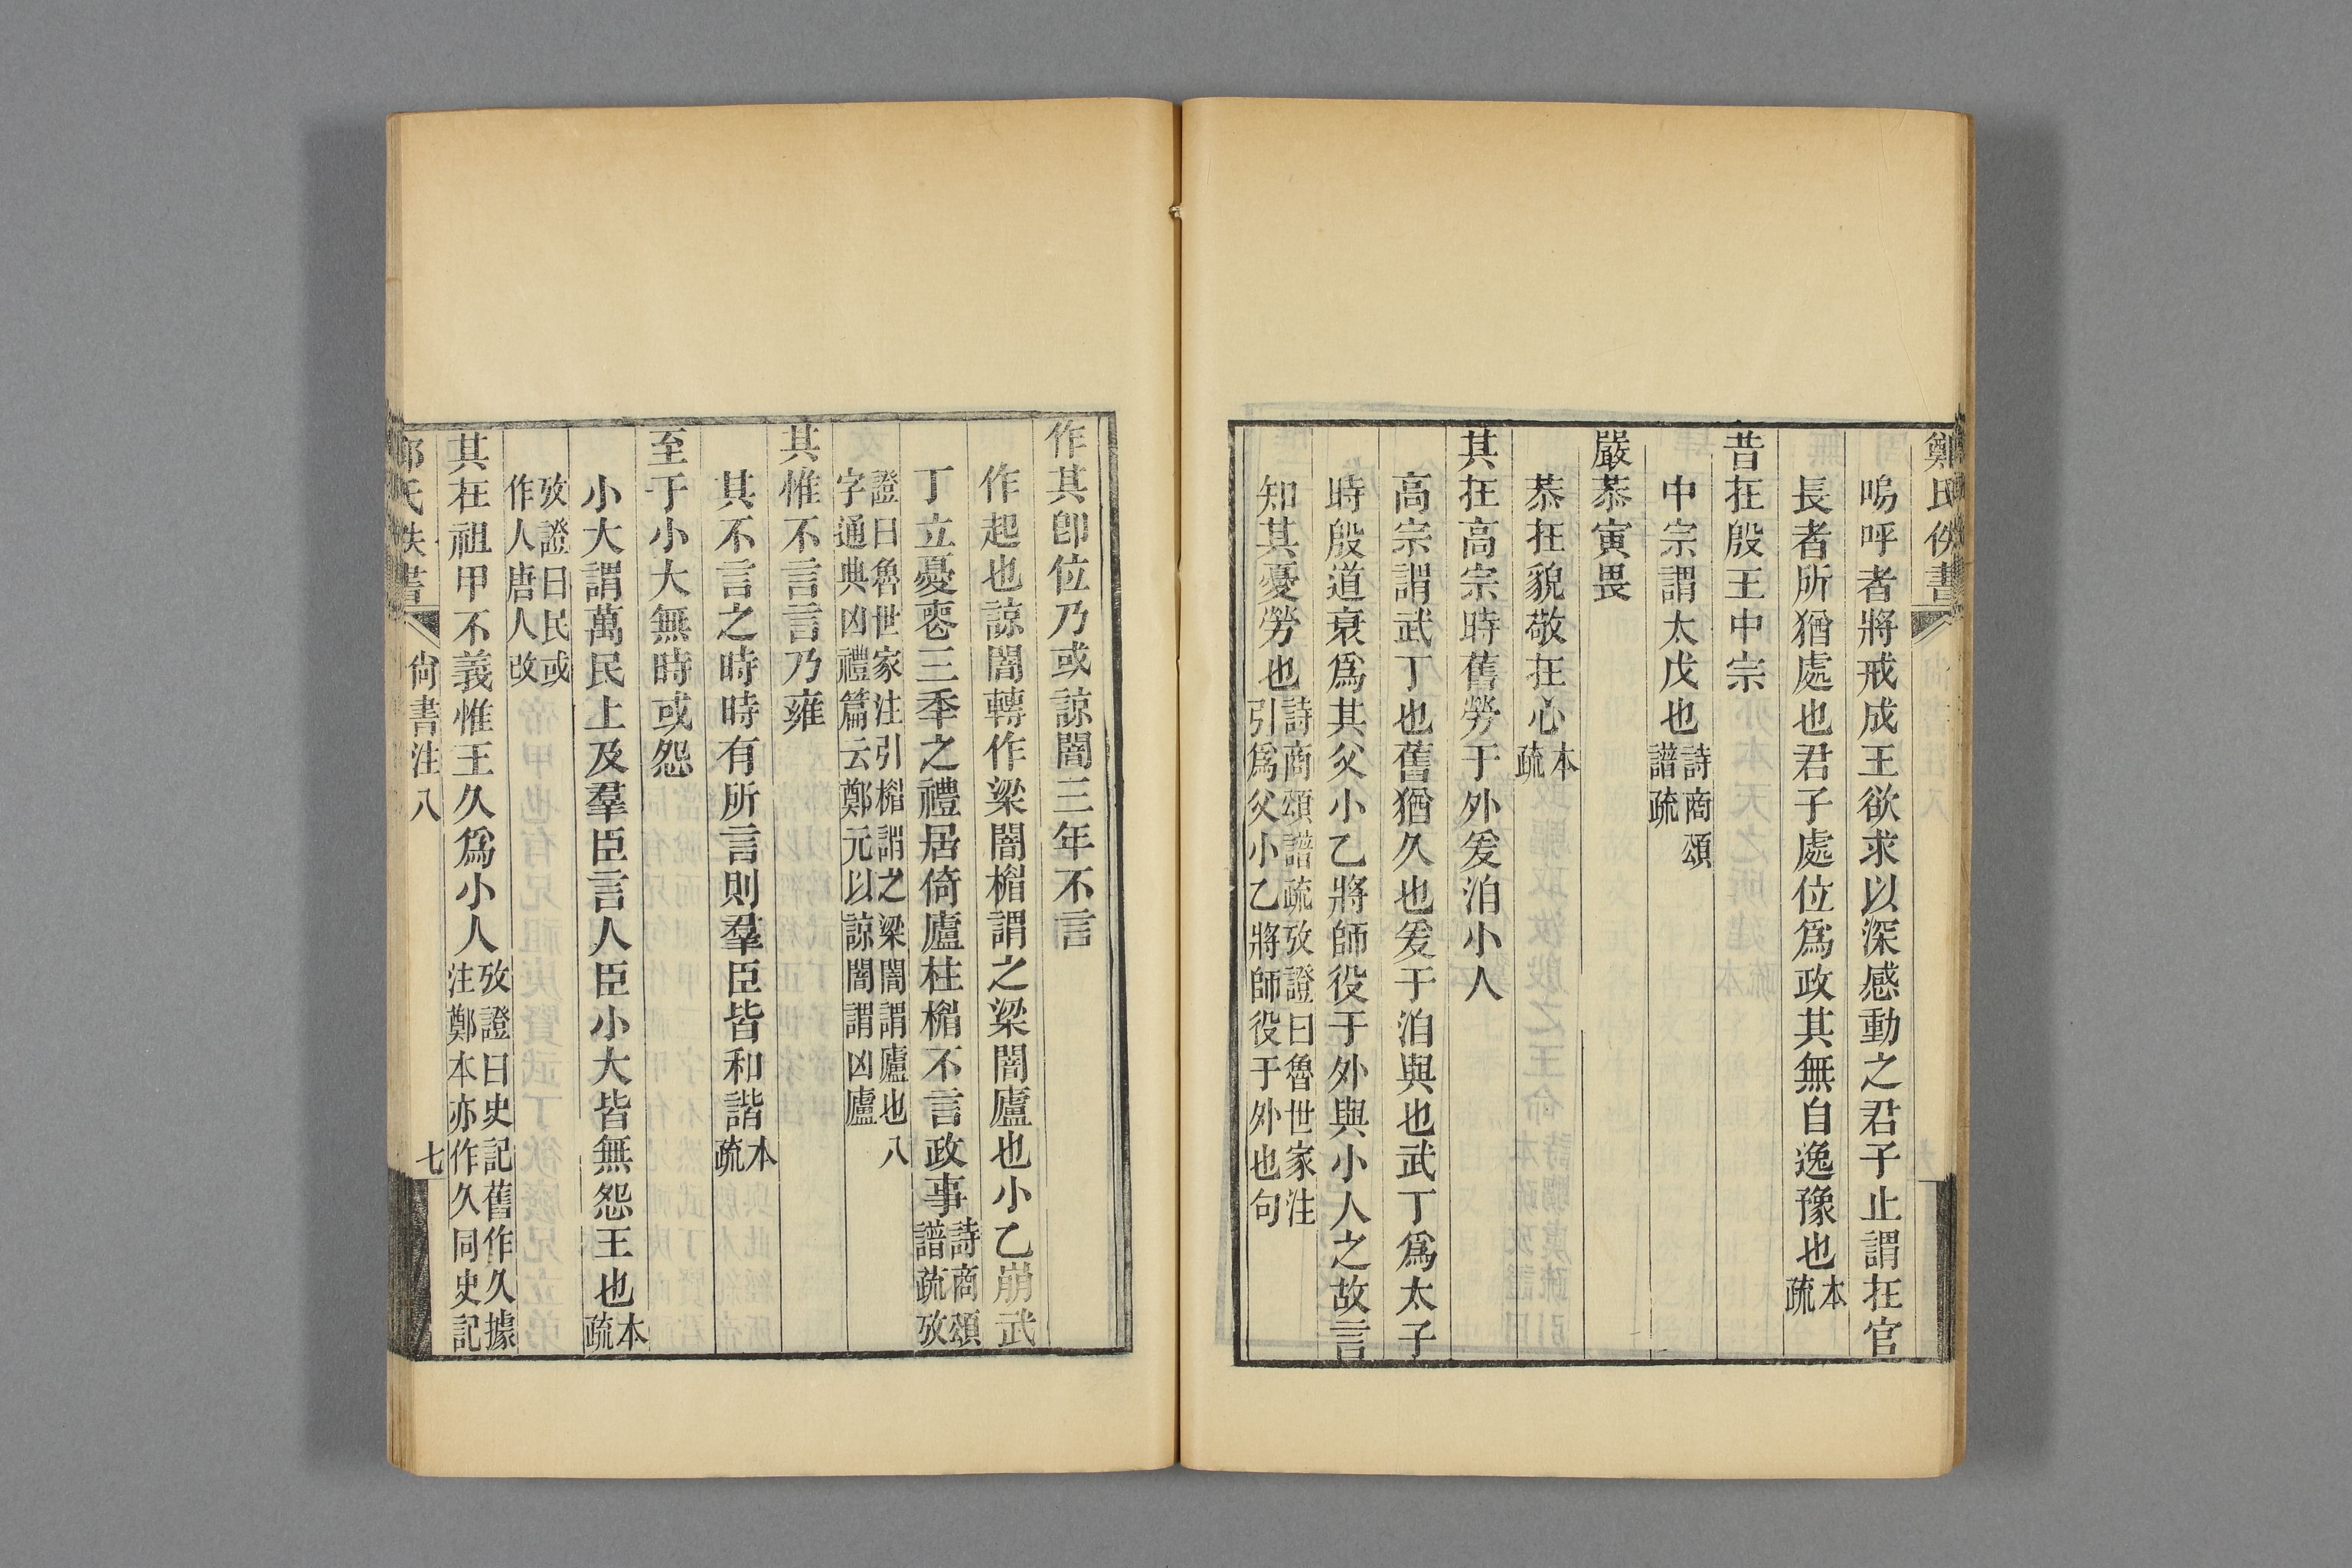 鄭氏佚書
嗚呼者將戒成王欲求以深感動之君子止謂在官
長者所猶處也君子處位爲政其無自逸豫也本疏
昔在殷王中宗
中宗謂太戊也詩商頌譜疏
嚴恭寅畏
恭在貌敬在心本疏
其在高宗時舊勞于外爰洎小人
高宗謂武丁也舊猶久也爰于洎與也武丁爲太子
時殷道衰爲其父小乙將師役于外與小人之故言
知其憂勞也詩商頌譜疏攷證曰魯世家注引爲父小乙將師役于外也句
作其卽位乃或諒闇三年不言
作起也諒闇轉作梁闇楣謂之梁闇廬也小乙崩武
丁立憂喪三秊之禮居倚廬柱楣不言政事詩商頌譜疏攷
證曰魯世家注引楣謂之梁闇謂廬也八字通典凶禮篇云鄭元以諒闇謂凶廬
其惟不言言乃雍
其不言之時時有所言則羣臣皆和諧本疏
至于小大無時或怨
小大謂萬民上及羣臣言人臣小大皆無怨王也本疏
攷證曰民或作人唐人改
其在祖甲不義惟王久爲小人攷證曰史記舊作久據注鄭本亦作久同史記
鄭氏佚書 尙書注八 七